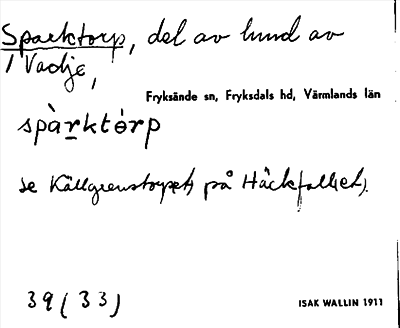 Sparktorp, del av lund av
1 Vadje,
Fryksände sn, Fryksdals hd, Värmlands län
spàrktȯ́rp
se Källgrenstorpet på Häckfallet).
39 (33)
ISAK WALLIN 1911